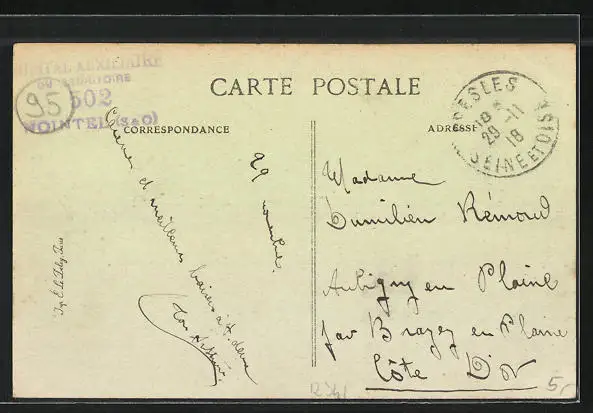 HOPITAL AUXILIAIRE
DU TERRITOIRE
502
NOINTEL (S&O)
95
CARTE POSTALE
PRESLES
18 *
29-11
18
SEINE ET OISE
CORRESPONDANCE
ADRESSE
29 novembre.
et meilleurs baisers à
ton
Madame
Dumilien Rémond
Aubigny en Plaine
par Brazey en Plaine
Côte D'Or
5